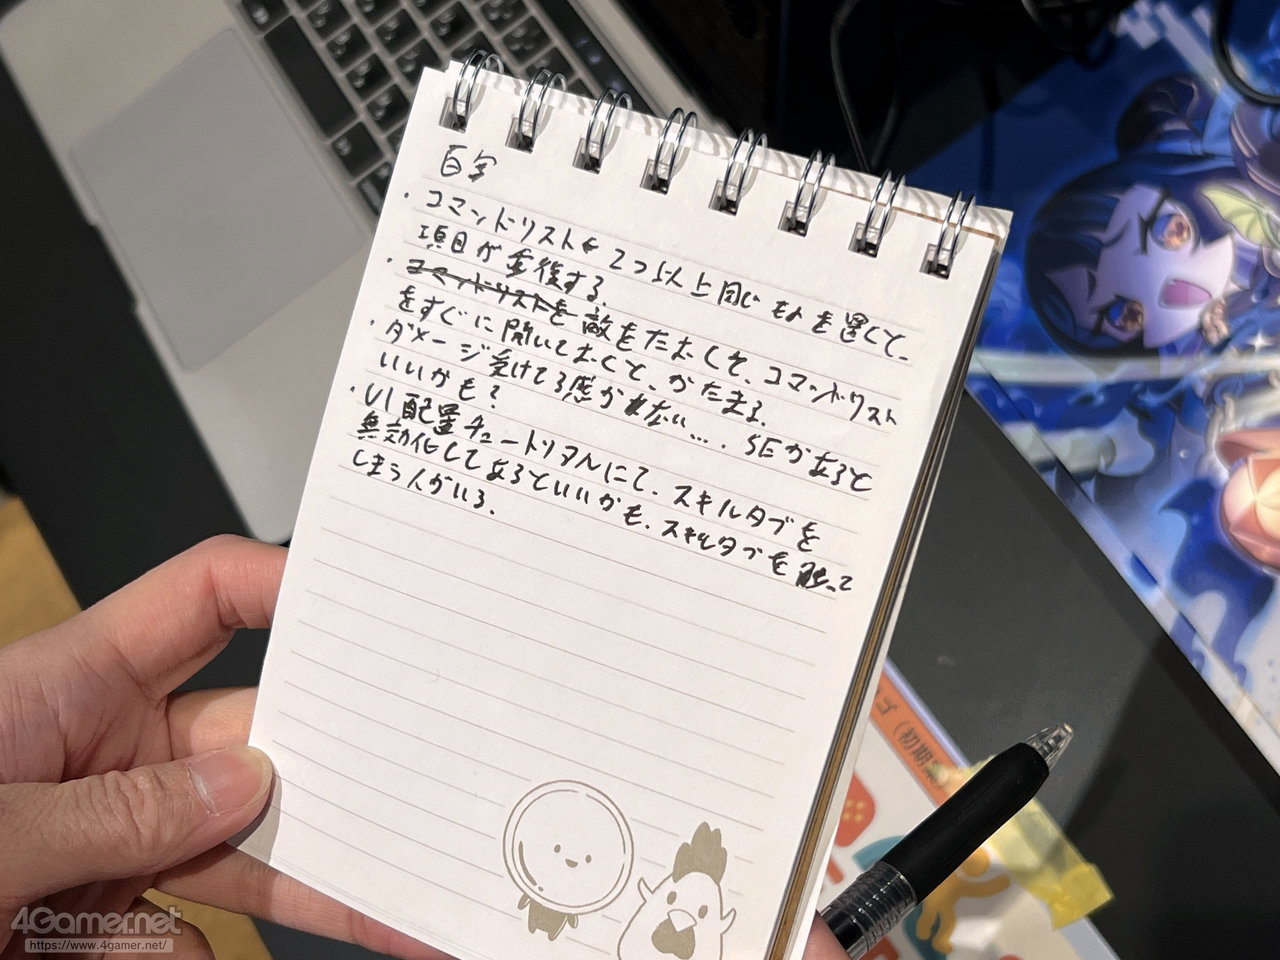 ・コマンドリストを2つ以上同じものを置くと、
項目が重複する。
・コマンドリストを敵をたおしてそ、コマンドリスト
をすぐに開いておくと、かたまる。
・ダメージ受けてる感がない…. SEがあると
いいかも?
・UI配置チュートリアルにて、スキルタブを
無効化してあるといいかも、スキルタブを触って
しまう人がいる。
ゴ(初期
4Gamer.net
https://www.4gamer.net/